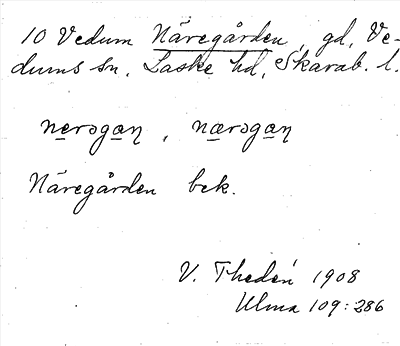 10 Vedum Näregården, gd, Ve-
dums sn, Laske hd, Skarab. l.
nerəgan, nærəgan
Näregården bek.
V. Thedén 1908
Ulma 109:286